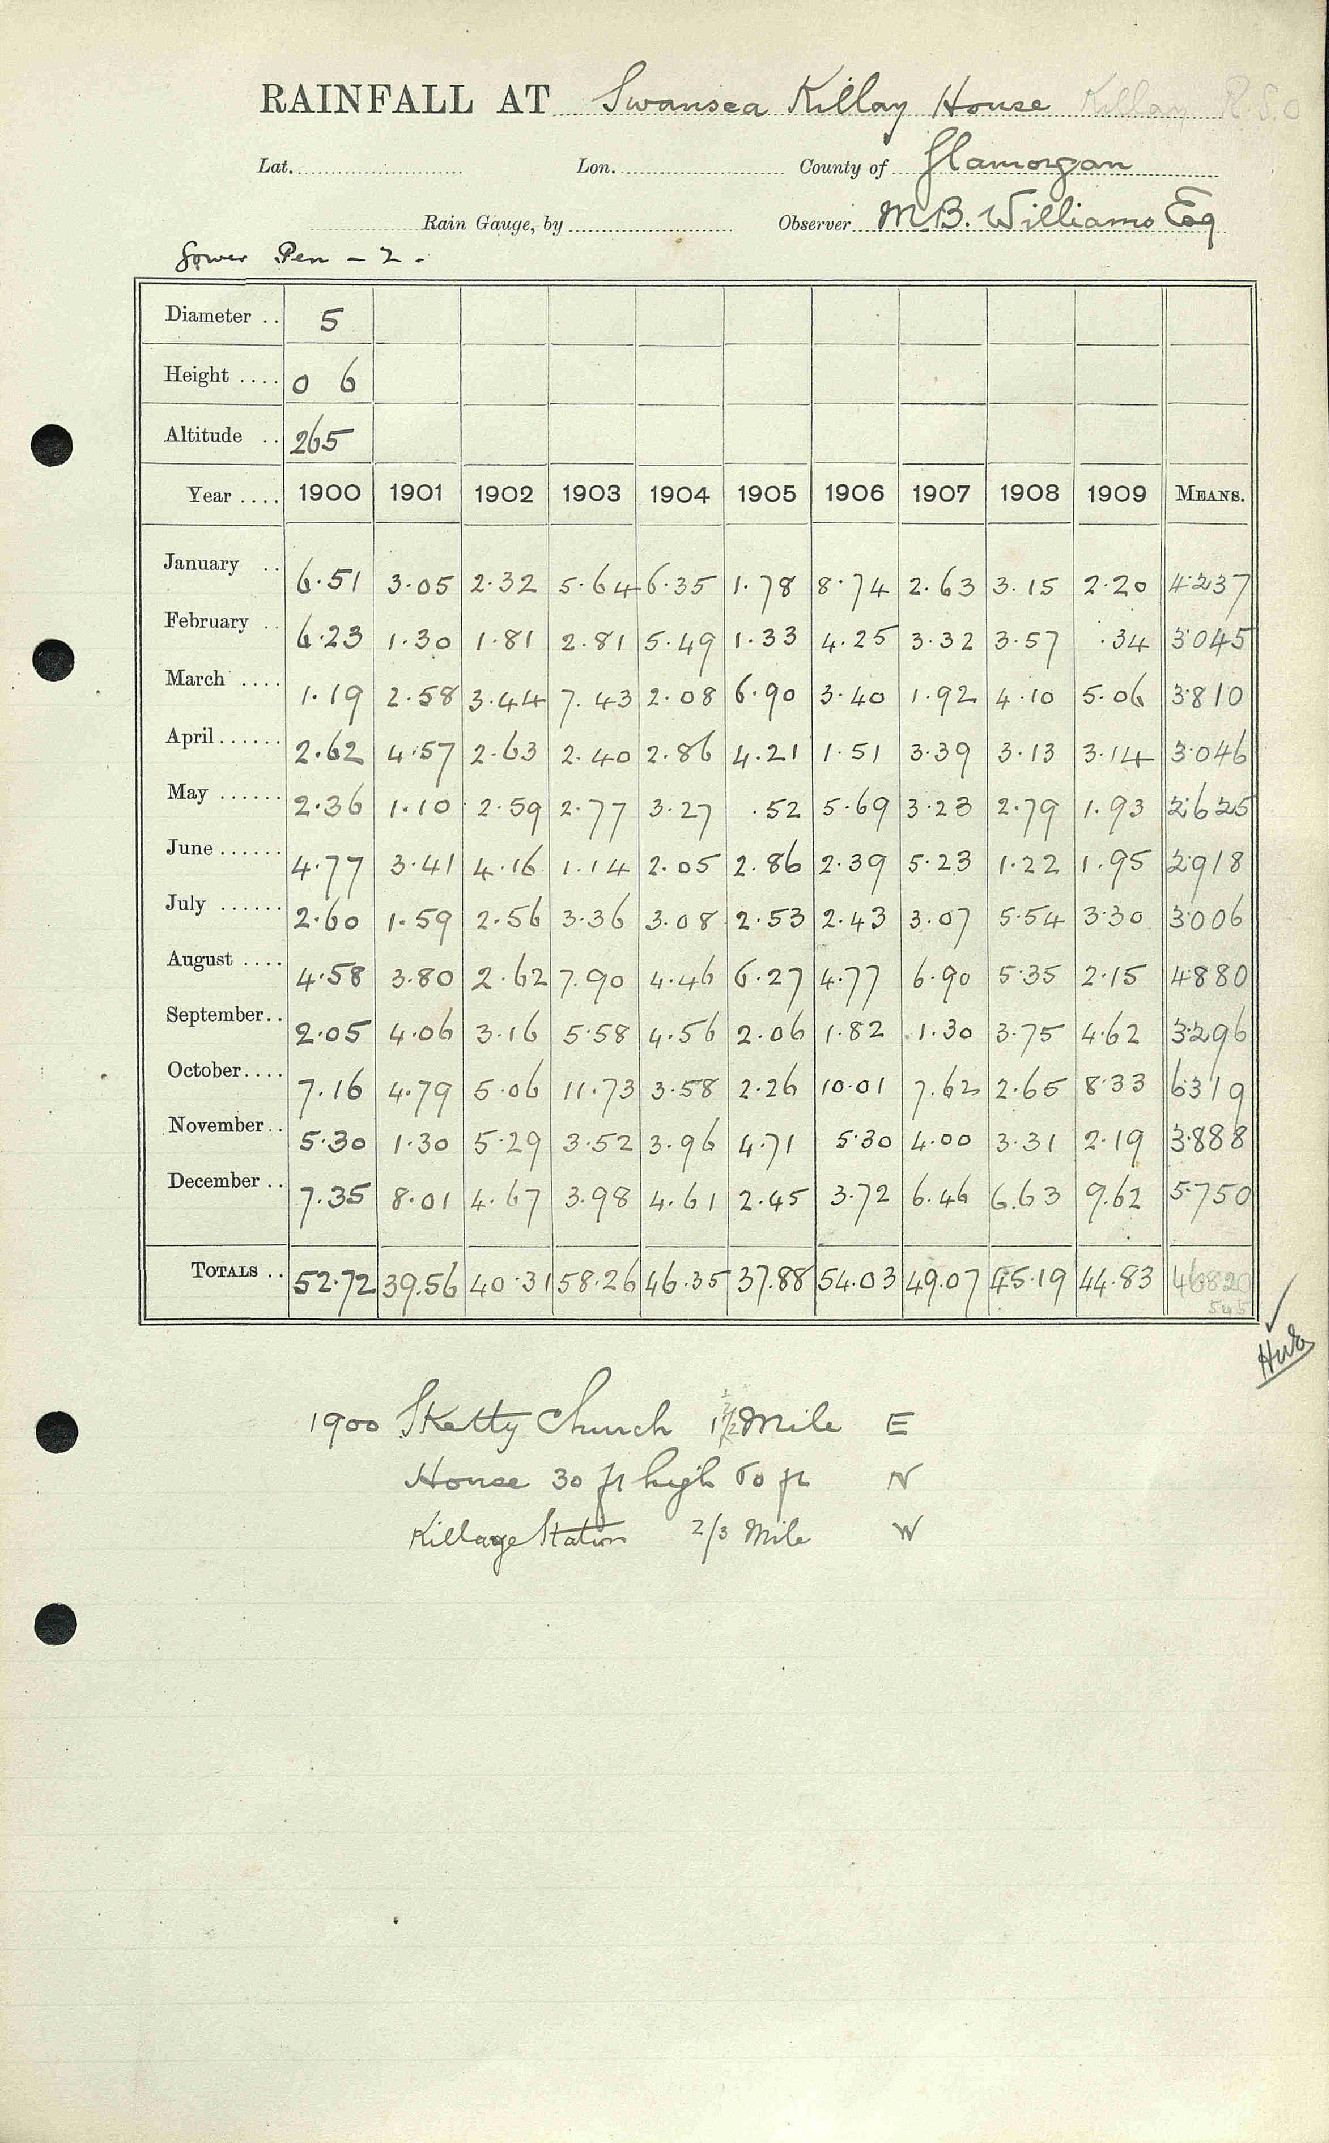 RAINFALL AT Swansea Killay House Killay R.S.O
Lat. Lon. County of Glamorgan
Rain Gauge, by Observer M.B. Williams Esq
Gower Pen - 2 -
Diameter .. 5
Height .... 0 6
Altitude .. 265
Year .... 1900 1901 1902 1903 1904 1905 1906 1907 1908 1909 MEANS.
January .. 6.51 3.05 2.32 5.64 6.35 1.78 8.74 2.63 3.15 2.20 4.237
February .. 6.23 1.30 1.81 2.81 5.49 1.33 4.25 3.32 3.57 .34 3.045
March .... 1.19 2.58 3.44 7.43 2.08 6.90 3.40 1.92 4.10 5.06 3.810
April...... 2.62 4.57 2.63 2.40 2.86 4.21 1.51 3.39 3.13 3.14 3.046
May ...... 2.36 1.10 2.59 2.77 3.27 .52 5.69 3.23 2.79 1.93 2.625
June ...... 4.77 3.41 4.16 1.14 2.05 2.86 2.39 5.23 1.22 1.95 2.918
July ...... 2.60 1.59 2.56 3.36 3.08 2.53 2.43 3.07 5.54 3.30 3.006
August .... 4.58 3.80 2.62 7.90 4.46 6.27 4.77 6.90 5.35 2.15 4.880
September.. 2.05 4.06 3.16 5.58 4.56 2.06 1.82 1.30 3.75 4.62 3.296
October.... 7.16 4.79 5.06 11.73 3.58 2.26 10.01 7.62 2.65 8.33 6.319
November.. 5.30 1.30 5.29 3.52 3.96 4.71 5.30 4.00 3.31 2.19 3.888
December .. 7.35 8.01 4.67 3.98 4.61 2.45 3.72 6.46 6.63 9.62 5.750
TOTALS .. 52.72 39.56 40.31 58.26 46.35 37.88 54.03 49.07 45.19 44.83 46820
545
1900 Sketty Church 1 1/2 Mile E
House 30 ft high 60 ft N
Killaye Station 2/3 Mile W